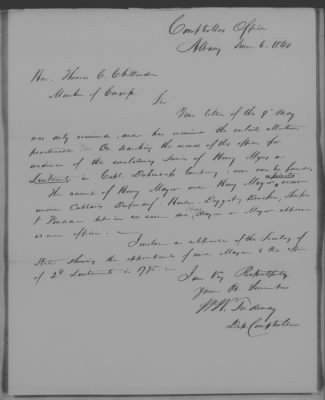 Comptrollers Office
Albany June 6. 1840
Hon. Thomas C. Chittenden
Member of Congress
Sir
Your letter of the 9th May
was duly received, and has received the earliest attention
practicable. On searching the records of this office for
evidence of the revolutionary service of Henry Myers a
Lieutenant in Capt. Company, none can be found,
The names of Henry Mayor and Henry Mayor appear
under Captains
but in no case does Mayor or Myer appear
as an officer.
I enclose a certificate of the Secretary of
State showing the appointment of one Mayor to the office
of 2d Lieutenant in 1775
I am Very Respectfully
Your Ob Servant
W.W.
Dep Comptroller